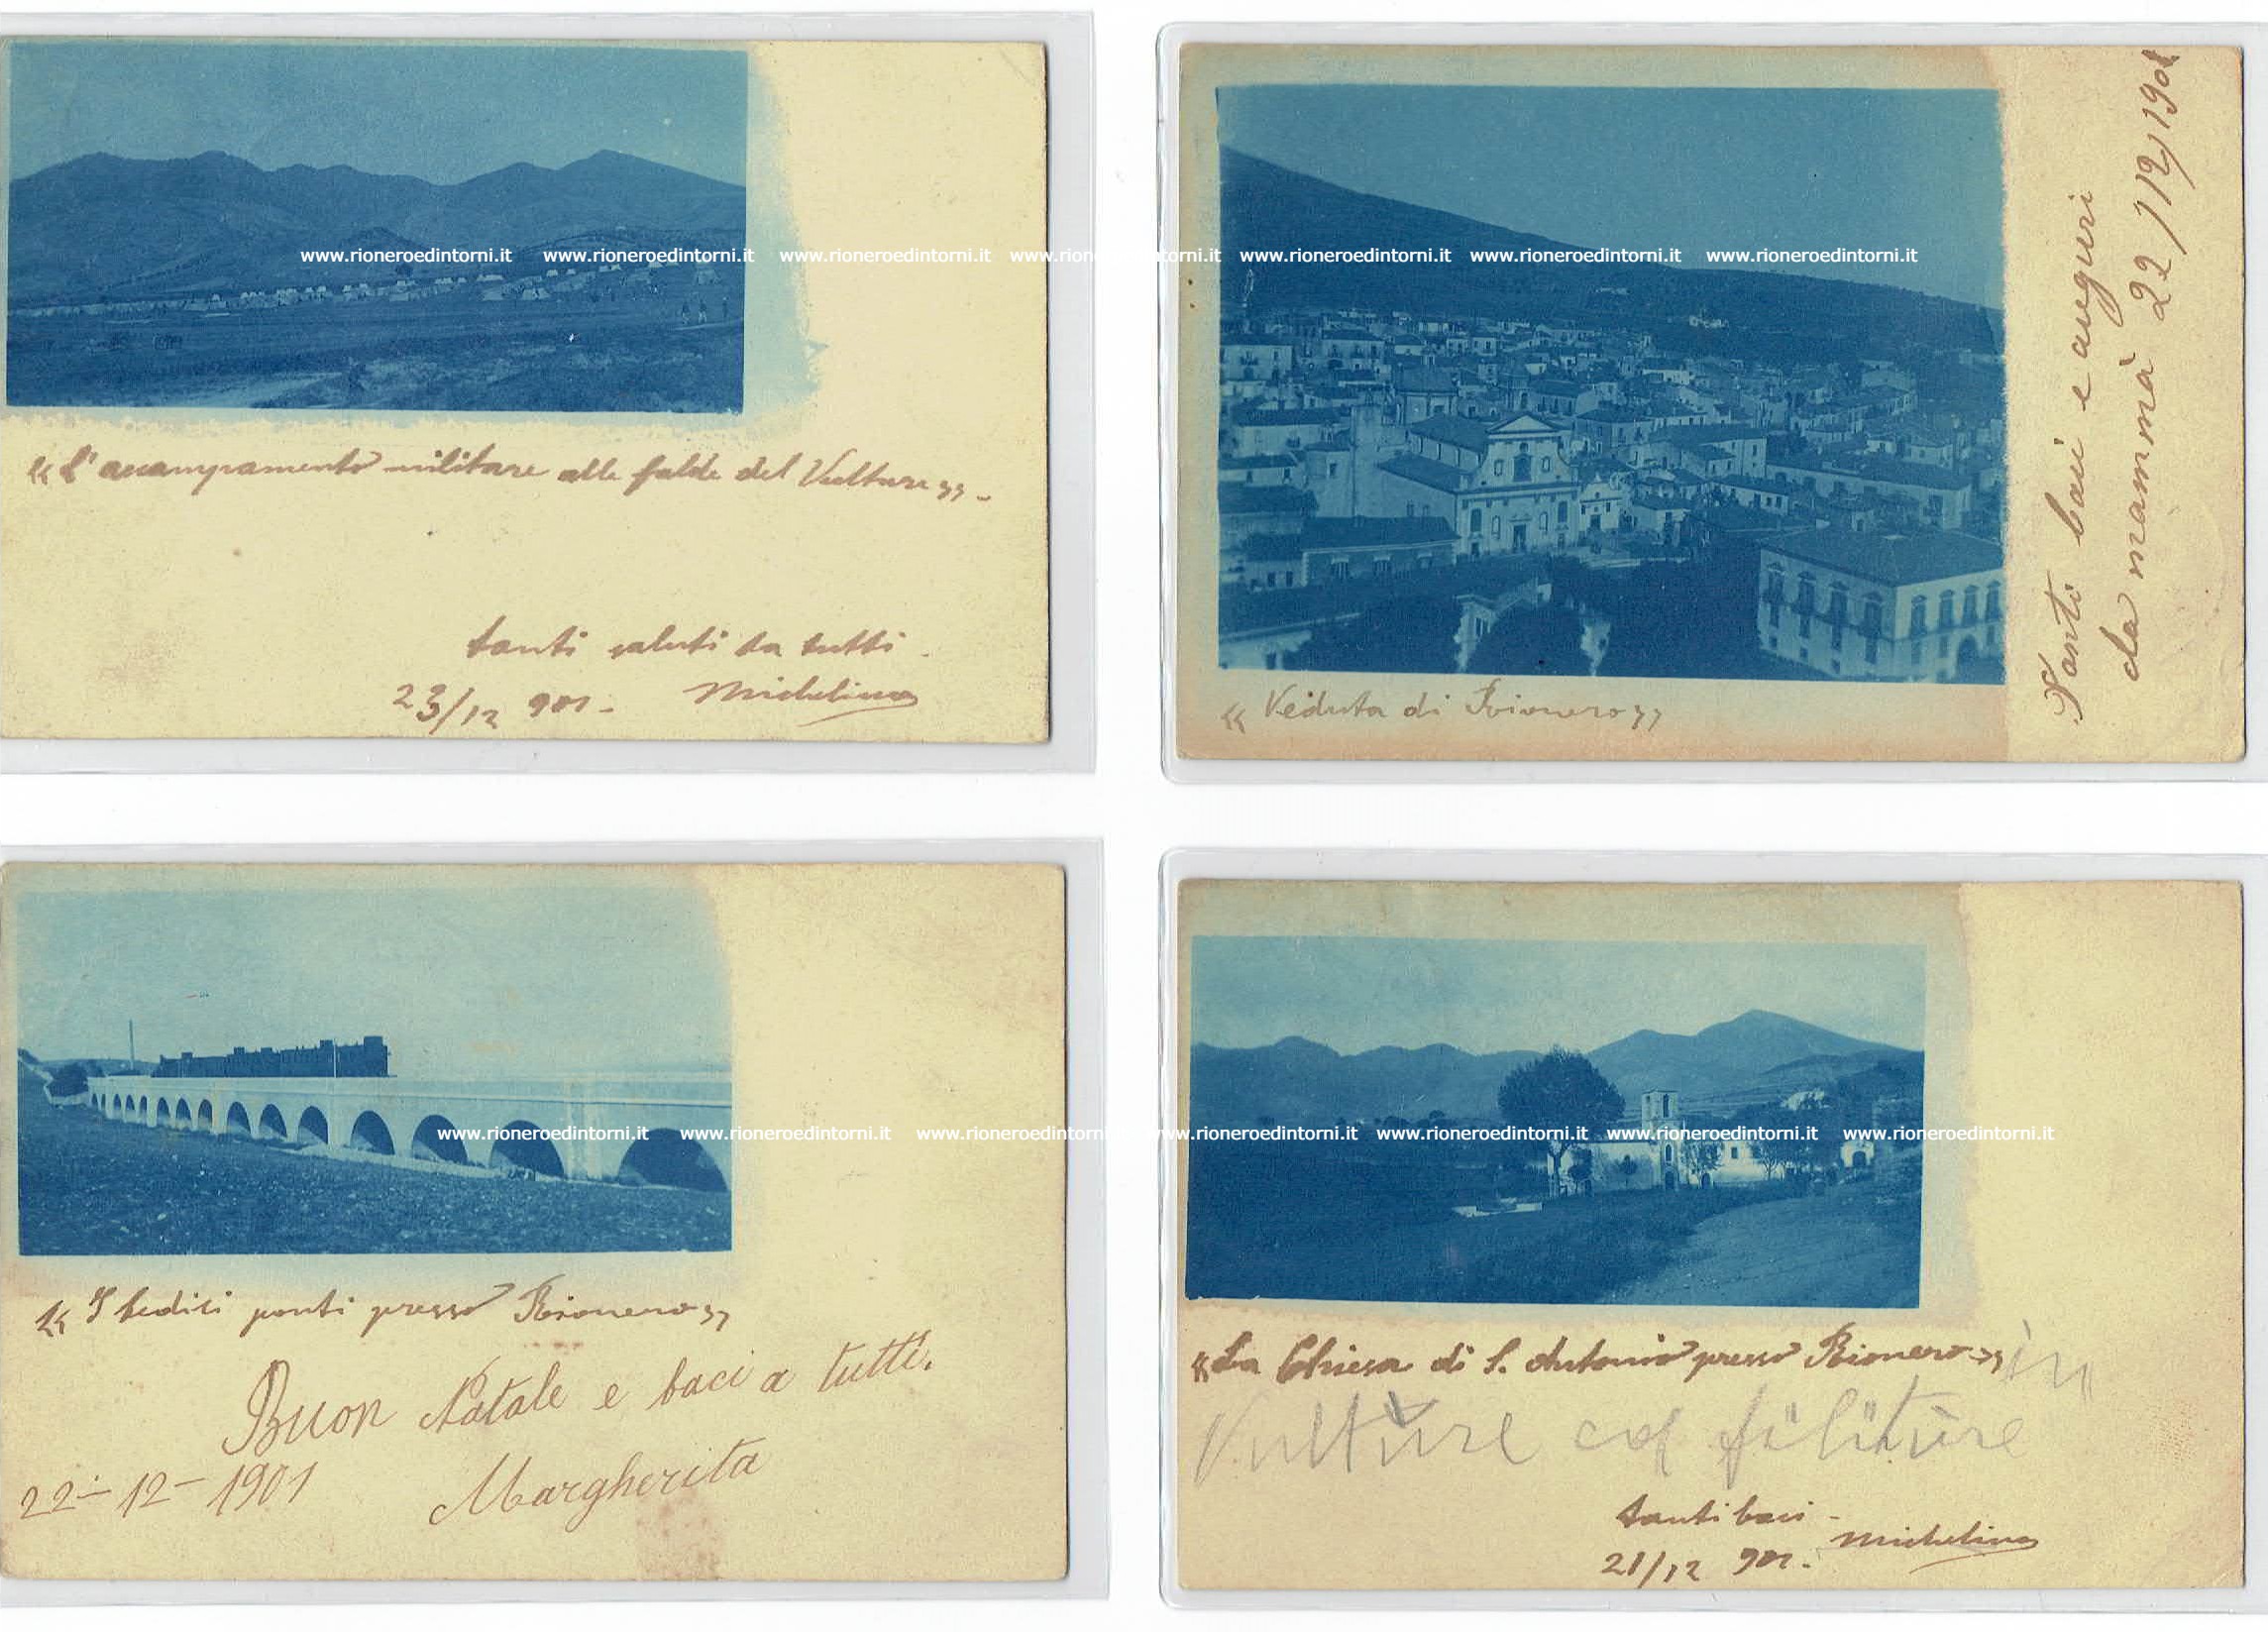 www.rioneroedintorni.it www.rioneroedintorni.it www.rioneroedintorni.it www.rioneroedintorni.it www.rioneroedintorni.it www.rioneroedintorni.it www.rioneroedintorni.it
« L'accampamento militare alle falde del Vulture ». -
tanti saluti da tutti.
23/12 901. - Michelina
« Veduta di Rionero »
Tanti baci e auguri
da mammà 22/12/1901
www.rioneroedintorni.it www.rioneroedintorni.it www.rioneroedintorni.it www.rioneroedintorni.it www.rioneroedintorni.it www.rioneroedintorni.it www.rioneroedintorni.it
« I tedici ponti presso Rionero »
Buon Natale e baci a tutti.
22-12-1901 Margherita
« La Chiesa di S. Antonio presso Rionero » in
Vulture
tanti baci -
21/12 901. - Michelina